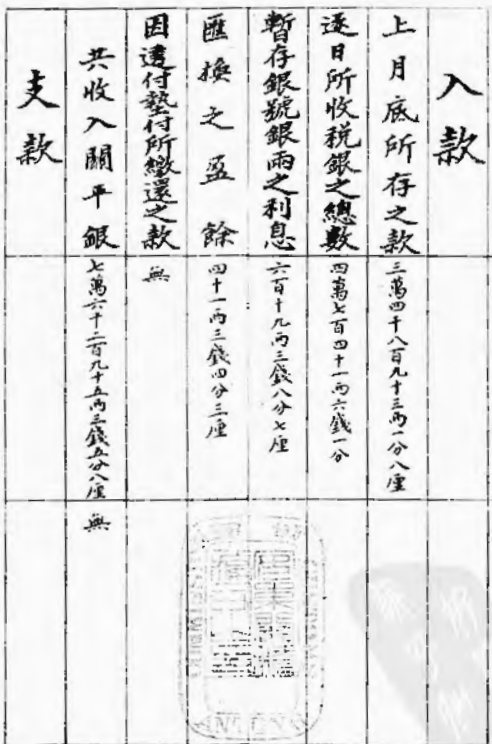 入款
上月底所存之款 三萬四千八百九十三兩一分八厘
逐日所收稅銀之總數 四萬七百四十一兩六錢一分
暫存銀號銀兩之利息 六百十九兩三錢八分七厘
匯換之盈餘 四十一兩三錢四分三厘
因付墊付所繳還之款 無
共收入關平銀 七萬六千二百九十五兩三錢五分八厘 無
支款